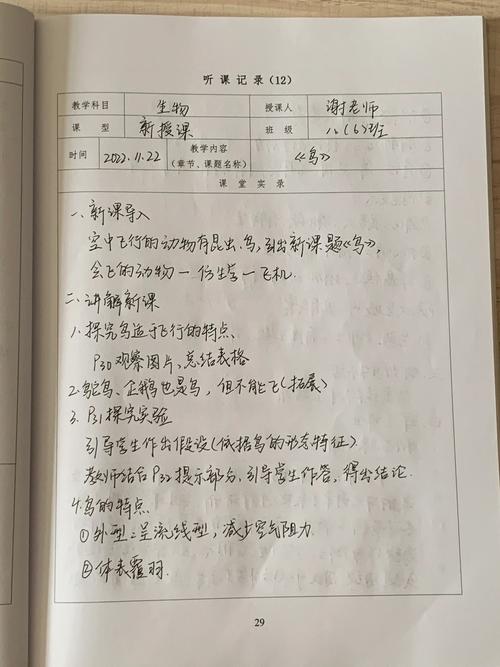 听课记录(12)
教学科目 生物 授课人 谢老师
课型 新授课 班级 八(6)班
时间 2022.11.22 教学内容(章节、课题名称) 《鸟》
课堂实录
一、新课导入
空中飞行的动物有昆虫、鸟,引出新课题《鸟》,
会飞的动物—仿生学—飞机.
二、讲解新课
1.探究鸟适于飞行的特点、
P30观察图片,总结表格
2.鸵鸟、企鹅也是鸟,但不能飞(拓展)
3. P31探究实验
引导学生作出假设(依据鸟的形态特征)
教师结合P30提示部分,引导学生作答,得出结论.
4.鸟的特点
①外型:呈流线型,减少空气阻力.
②体表覆羽.
29